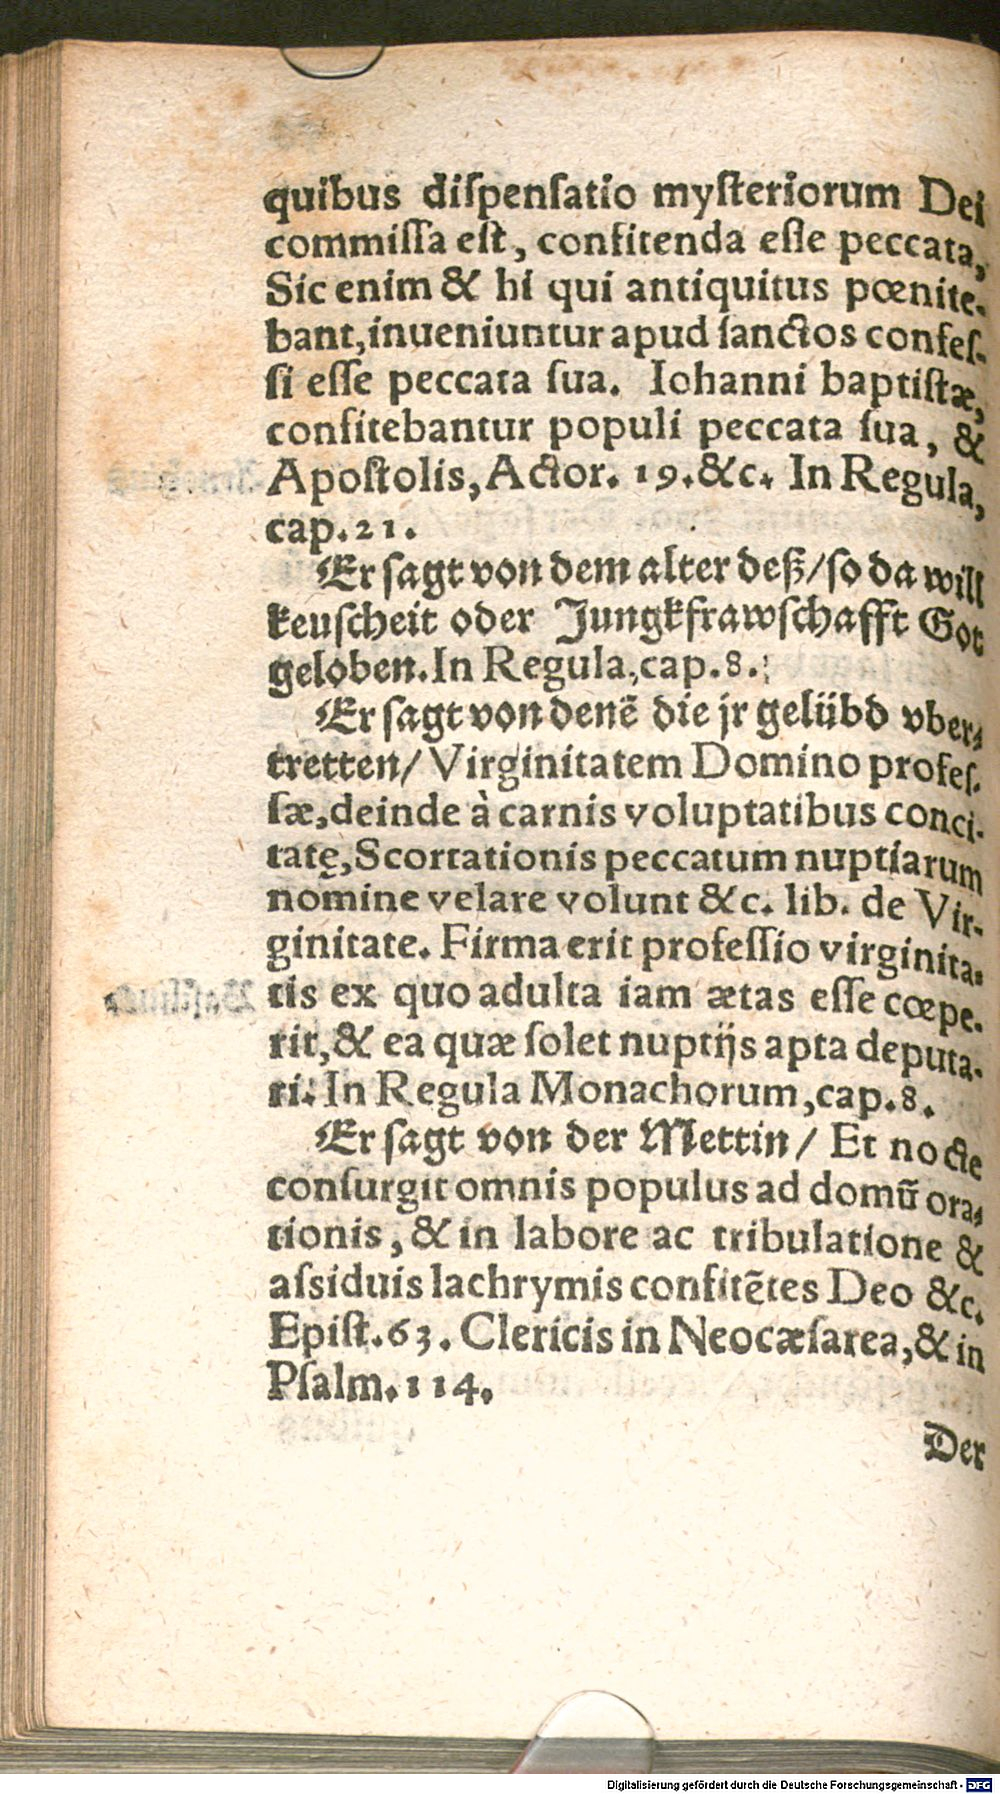 quibus diſpenſatio myſteriorum Dei
commiſſa eſt, confitenda eſſe peccata,
Sic enim & hi qui antiquitus pœnite-
bant, inueniuntur apud ſanctos confeſ-
ſi eſſe peccata ſua. Iohanni baptiſtæ,
confitebantur populi peccata ſua, &
Apoſtolis, Actor. 19. &c. In Regula,
cap. 21.
Er ſagt von dem alter deß/ ſo da will
keuſcheit oder Jungkfrawſchafft Got
geloben. In Regula, cap. 8.
Er ſagt von denē die jr gelübd vber-
tretten/ Virginitatem Domino profeſ-
ſæ, deinde à carnis voluptatibus conci-
tatę, Scortationis peccatum nuptiarum
nomine velare volunt &c. lib. de Vir-
ginitate. Firma erit profeſſio virginita-
tis ex quo adulta iam ætas eſſe cœpe-
rit, & ea quæ ſolet nuptijs apta deputa-
ri: In Regula Monachorum, cap. 8.
Er ſagt von der Mettin/ Et nocte
conſurgit omnis populus ad domū ora-
tionis, & in labore ac tribulatione &
aſsiduis lachrymis confitētes Deo &c.
Epiſt. 63. Clericis in Neocæſarea, & in
Pſalm. 114.
Der
Digitalisierung gefördert durch die Deutsche Forschungsgemeinschaft - DFG